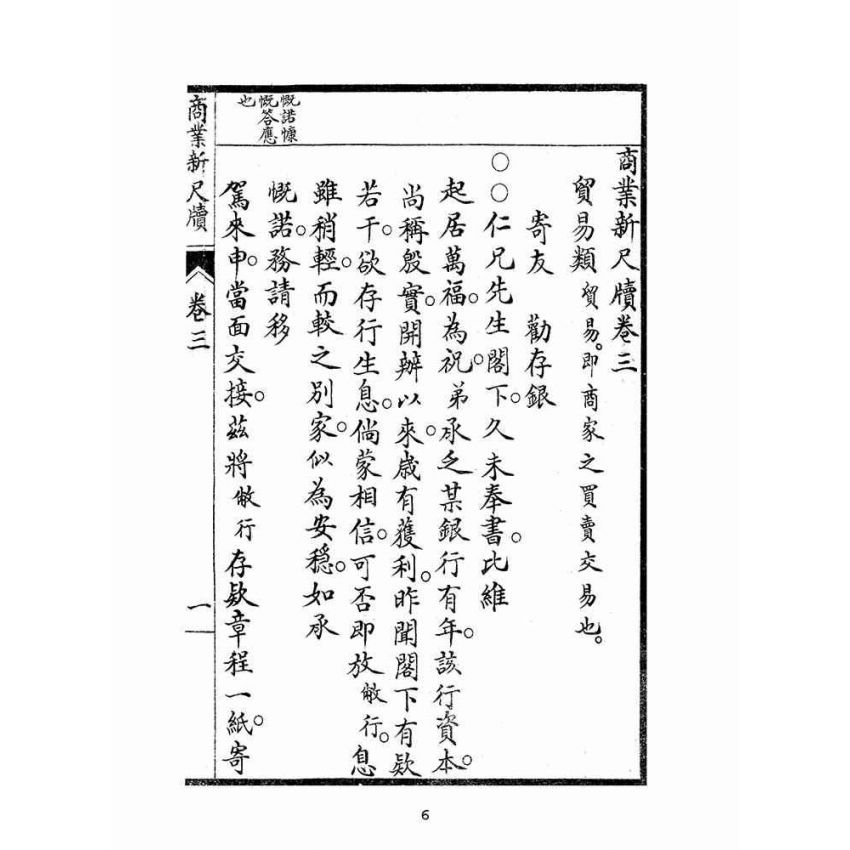 商業新尺牘卷三
貿易類 貿易。即商家之買賣交易也。
寄友　勸存銀
○○仁兄先生閣下。久未奉書。比維
起居萬福。為祝。弟承乏某銀行有年。該行資本。
尚稱殷實。開辦以來。歲有獲利。昨聞閣下有欵
若干。欲存行生息。倘蒙相信。可否即放敝行。息
雖稍輕。而較之別家。似為安穩。如承
慨諾。務請移
駕來申。當面交接。茲將敝行存欵章程一紙。寄
慨諾慷
慨答應
也
商業新尺牘　卷三　一
6